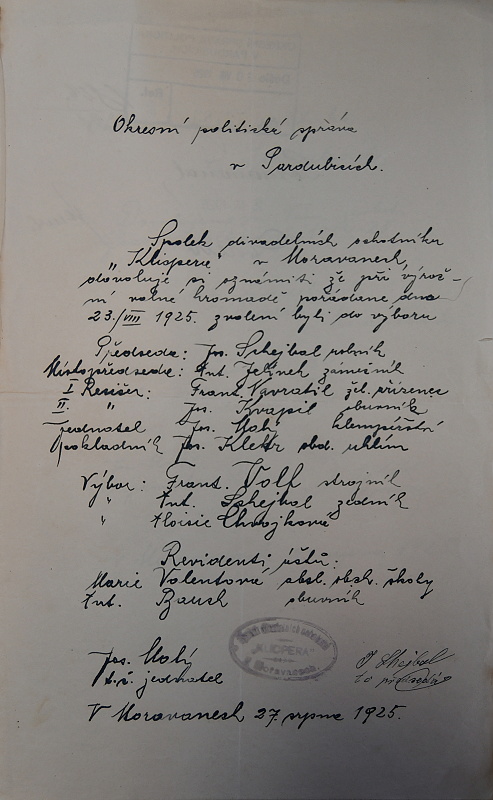 Okresní politická správa
v Pardubicích.
Spolek divadelních ochotníků
„Klicpera" v Moravanech,
dovoluje si oznámiti že při výroč-
ní valné hromadě pořádané dne
23./VIII 1925. zvoleni byli do výboru
Předseda: Jos. Schejbal rolník
Místopředseda: Ant. Jelínek zámečník
I Resišer: Frant. Navrátil žel. zřízenec
II. " Jos. Kvapil obuvník
Jednatel Jos. Malý klempířství
Pokladník Jos. Klektr obd. uhlím
Výbor: Frant. Volf strojník
" Ant. Schejbal zedník
" Aloisie Chvojková
Revidenti účtů:
Marie Valentová absl. obch. školy
Ant. Baush obuvník
"KLICPERA"
v Moravanech
Jos. Malý
t.č. jednatel
J Schejbal
t.č. předseda
V Moravanech 27. srpna 1925.